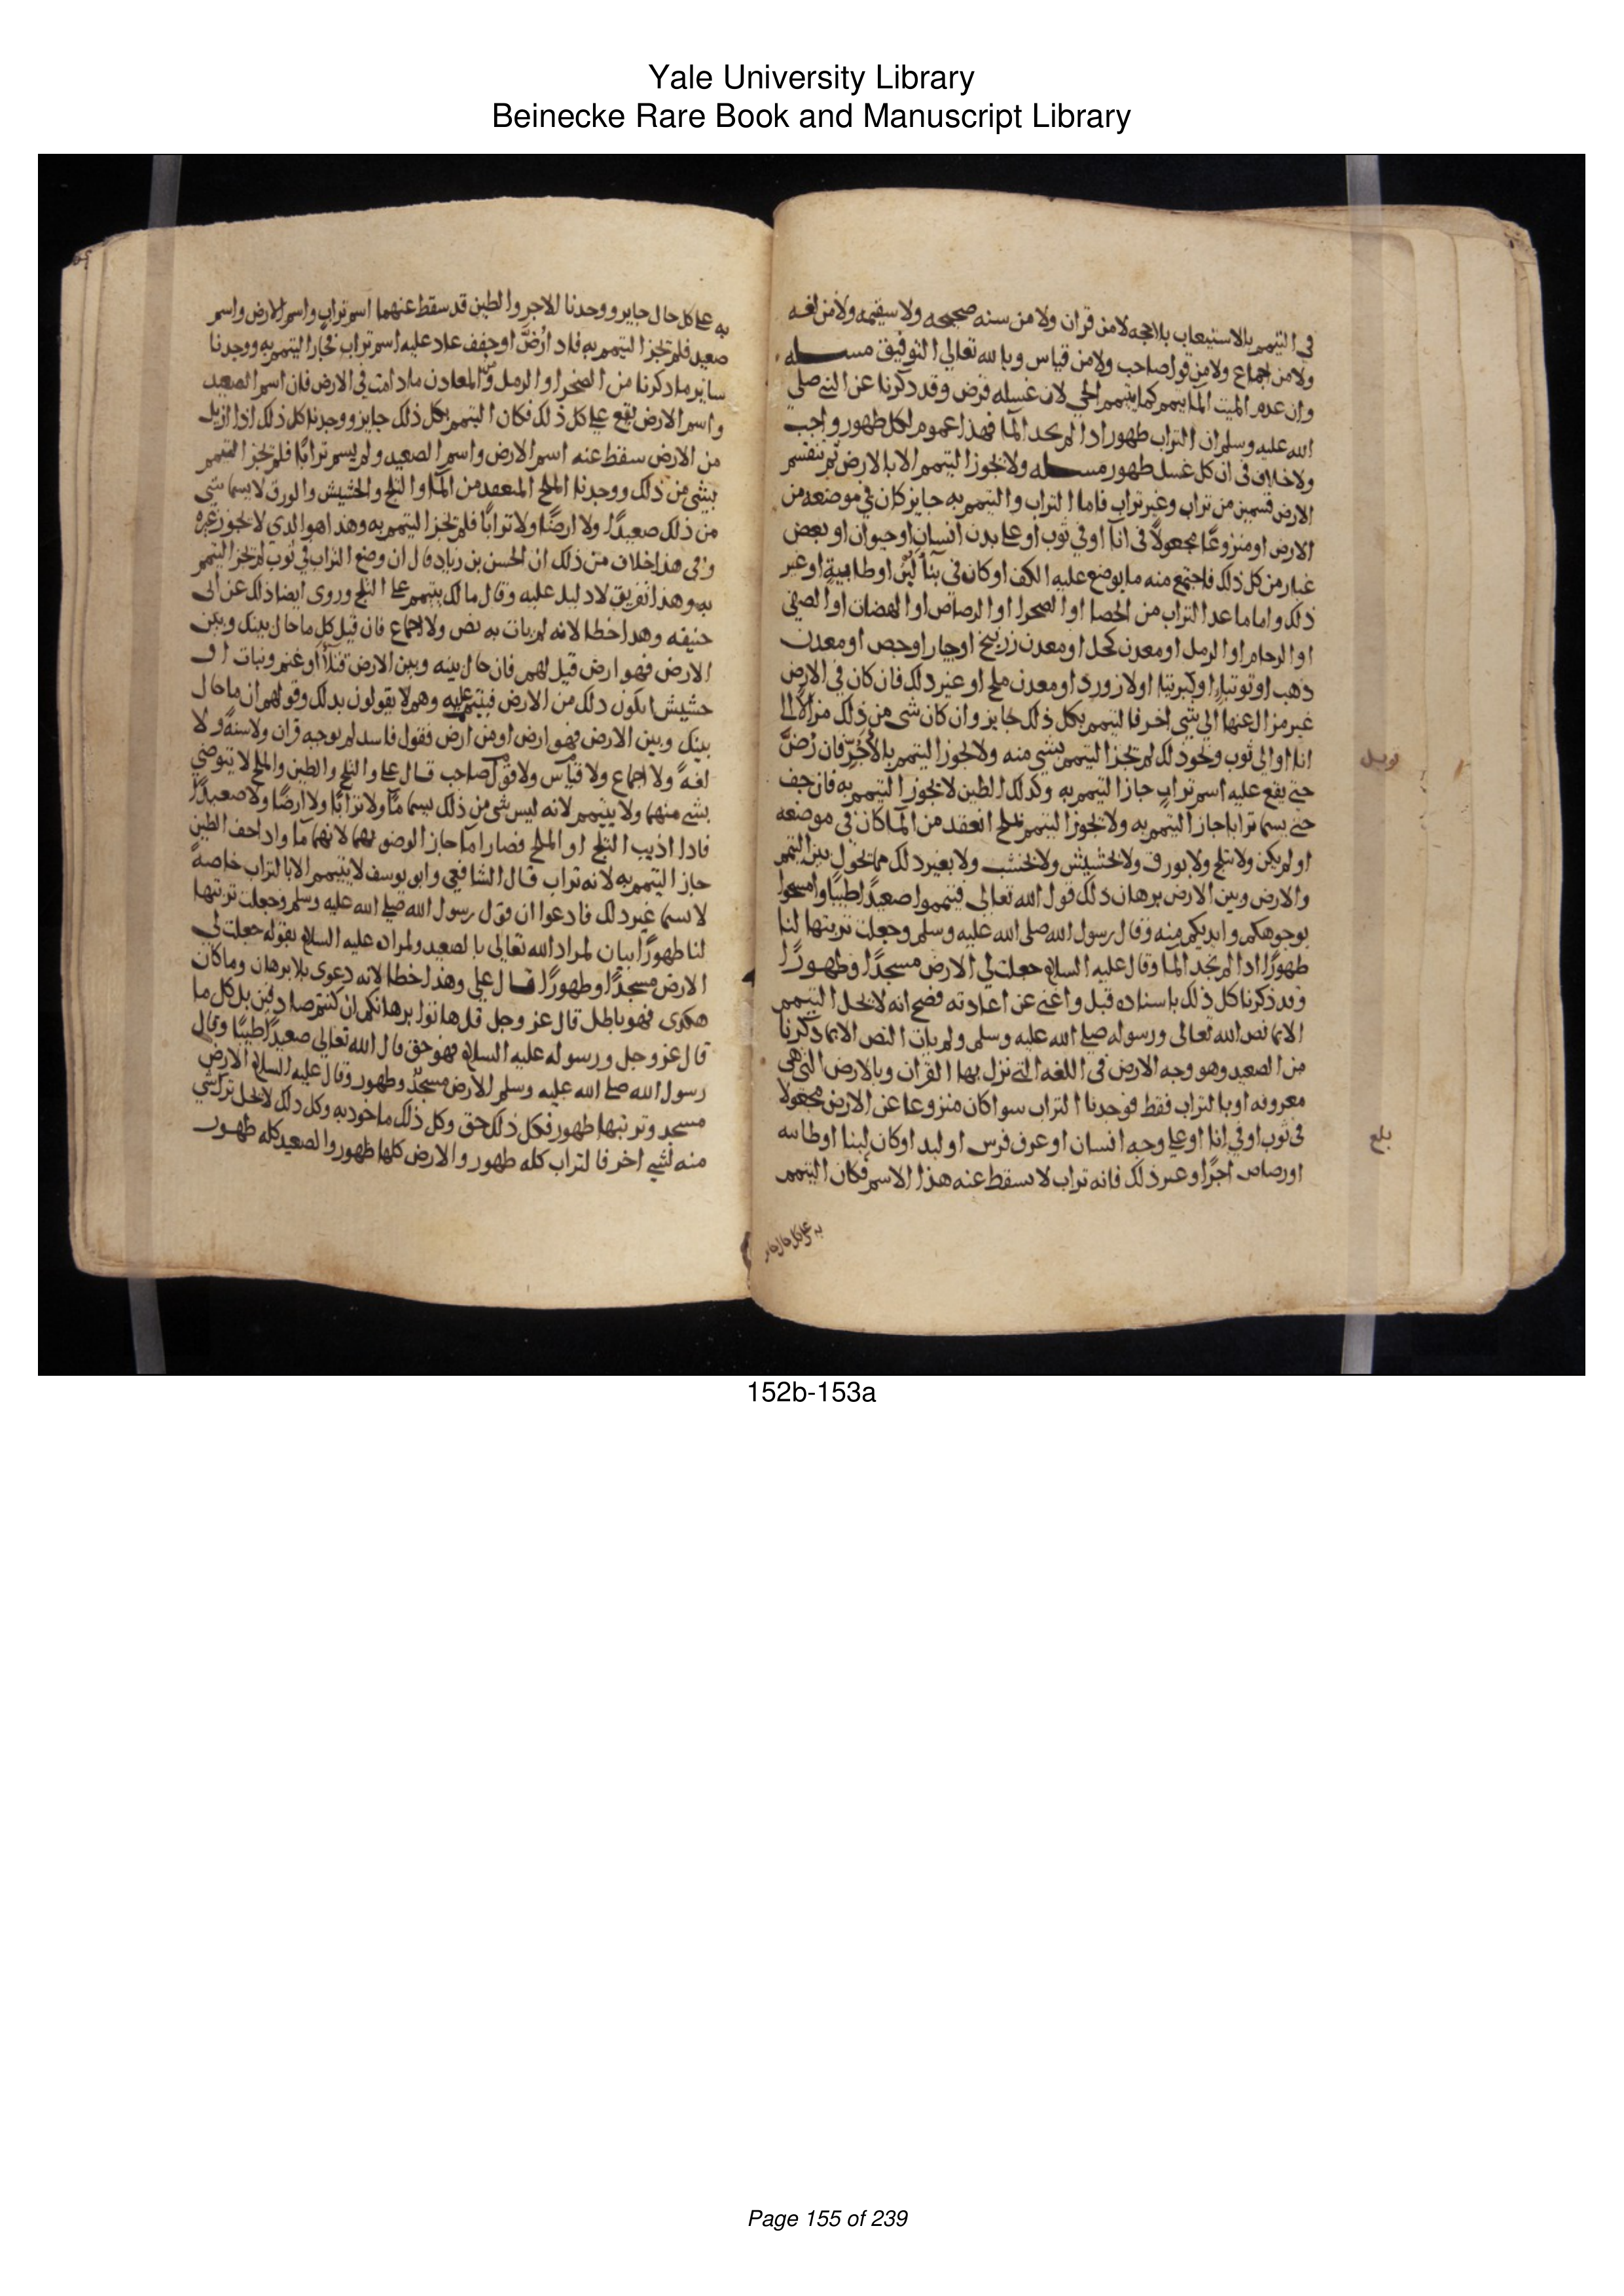 Yale University Library
Beinecke Rare Book and Manuscript Library
في التيمم بالاستيعاب بلا حجه لا من قران ولا من سنه صحيحه ولا سقيمه ولا من لغه
ولا من اجماع ولا من قول صاحب ولا من قياس وبالله تعالى التوفيق مسله
وان عدم الميت الما يمم كما يتيمم الحي لان غسله فرض وقد ذكرنا عن النبي صلى
الله عليه وسلم ان التراب طهور اذا لم يجد الما فهذا عموم لكل طهور واجب
ولا خلاف في ان كل غسل طهور مسله ولا يجوز التيمم الا بالارض ثم تنقسم
الارض قسمين من تراب وغير تراب فاما التراب والتيمم به جايز كان في موضعه من
الارض او منزوعًا مجعولًا في انآ او في ثوب او على بدن انسان او حيوان او بعض
غبار من كل ذلك فاجتمع منه ما يوضع عليه الكف او كان في بنآ لبن او طابية او غير
ذلك واما ما عدا التراب من الحصا او الصحرا او الرصاص او الهضات او الصفي
او الرخام او الرمل او معدن كحل او معدن زرنيخ او جيار او جص او معدن
ذهب او توتيا او كبريتا او لازورد او معدن ملح او غير ذلك فان كان في الارض
غير مزال عنها الى شي اخر فالتيمم بكل ذلك جايز وان كان شي من ذلك مزالا الى
انا او الى ثوب ونحو ذلك لم تجز التيمم بشي منه ولا يجوز التيمم بالاجر فان رض
حتى يقع عليه اسم تراب جاز التيمم به وكذلك الطين لا يجوز التيمم به فان جف
حتى يسما ترابا جاز التيمم به ولا يجوز التيمم بملح انعقد من الما كان في موضعه
او لم يكن ولا بثلج ولا بورق ولا بحشيش ولا بخشب ولا بغير ذلك مما تحول بين المتيمم
والارض وبين الارض برهان ذلك قول الله تعالى فتيمموا صعيدًا طيبًا وامسحوا
بوجوهكم وايديكم منه وقال رسول الله صلى الله عليه وسلم وجعلت تربتها لنا
طهورًا اذا لم يجد الما وقال عليه السلام جعلت لي الارض مسجدًا وطهورًا
وقد ذكرنا كل ذلك باسناده قبل واغنى عن اعادته فصح انه لا يحل التيمم
الا بما نص الله تعالى ورسوله صلى الله عليه وسلم ولم يات النص الا بما ذكرنا
من الصعيد وهو وجه الارض في اللغه التي نزل بها القران وبالارض التي هي
معروفه او بالتراب فقط فوجدنا التراب سوا كان منزوعا عن الارض مجعولا
في ثوب او في انا او على وجه انسان او عرف فرس او لبد او كان لبنا او طابيه
او رضاض اجرًا وغير ذلك فانه تراب لا يسقط عنه هذا الاسم فكان التيمم
به على كل حال جاير
بلع
به على كل حال جايز ووجدنا الاجر والطين قد سقط عنهما اسم تراب واسم الارض واسم
صعيد فلم تجز التيمم به فاذا رُضَّ او جفف عاد عليه اسم تراب فجاز التيمم به ووجدنا
ساير ما ذكرنا من الصخر او الرمل ومن المعادن ما دامت في الارض فان اسم الصعيد
واسم الارض يقع على كل ذلك فكان التيمم بكل ذلك جايز ووجدنا كل ذلك اذا ازيل
من الارض سقط عنه اسم الارض واسم الصعيد ولم يسم ترابًا فلم تجز التيمم
بشي من ذلك ووجدنا الملح المنعقد من المآ والثلج والحشيش والورق لا يسما شي
من ذلك صعيدًا ولا ارضًا ولا ترابًا فلم تجز التيمم به وهذا هو الذي لا يجوز غيره
وفي هذا خلاف من ذلك ان الحسن بن زياد قال ان وضع التراب في ثوب لم تجز التيمم
به وهذا تفريق لا دليل عليه وقال مالك يتيمم على الثلج وروى ايضا ذلك عن ابي
حنيفه وهذا خطا لانه لم يات به نص ولا اجماع فان قيل كل ما حال بينك وبين
الارض فهو ارض قيل لهم فان حال بينه وبين الارض قتلآ او غنم وبنات او
حشيش ايكون ذلك من الارض فيتيمم عليه وهم لا يقولون بذلك وقولهم ان ما حال
بينك وبين الارض فهو ارض او من ارض فقول فاسد لم يوجبه قران ولا سنةً ولا
لغةً ولا اجماع ولا قياس ولا قول صاحب قال علي والثلج والطين والملح لا يتوضي
بشي منهما ولا يتيمم لانه ليس شي من ذلك يسما مًا ولا ترابًا ولا ارضًا ولا صعيدًا
فاذا اذيب الثلج او الملح فصارا مآ جاز الوضو بهما لانهما مآ واذا جف الطين
جاز التيمم به لانه تراب قال الشافعي وابو يوسف لا يتيمم الا بالتراب خاصةً
لا سيما غير ذلك فادعوا ان قول رسول الله صلى الله عليه وسلم وجعلت تربتها
لنا طهورًا بيان لمراد الله تعالى بالصعيد ولمراده عليه السلام بقوله جعلت لي
الارض مسجدًا وطهورًا قال علي وهذا خطا لانه دعوى بلا برهان وما كان
هكذى فهو باطل قال عز وجل قل هاتوا برهانكم ان كنتم صادقين بل كل ما
قال عز وجل ورسوله عليه السلام فهو حق قال الله تعالى صعيدًا طيبًا وقال
رسول الله صلى الله عليه وسلم الارض مسجدٌ وطهور وقال عليه السلام الارض
مسجد وتربتها طهور فكل ذلك حق وكل ذلك ماخوذ به وكل ذلك لا يحل ترك شي
منه لشي اخر فالتراب كله طهور والارض كلها طهور والصعيد كله طهور
152b-153a
Page 155 of 239